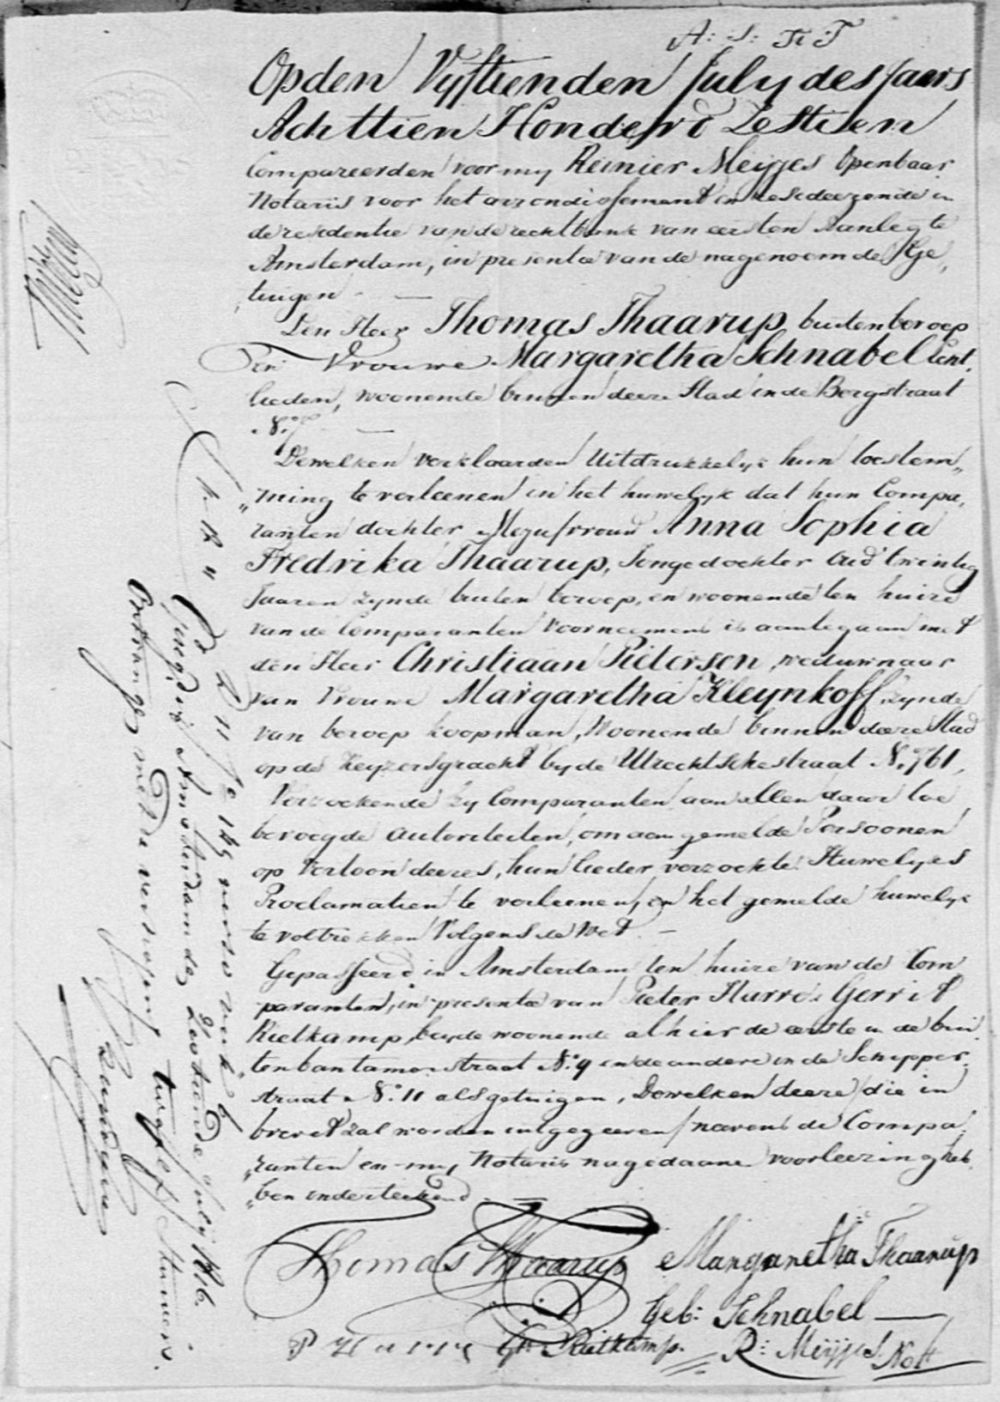 A: S: F: T
Op den Vyftienden July des Jaars
Achttien Honderd Zestien
Compareerden voor my Reinier Meijjes Openbaar
Notaris voor het arrondissement en resideerende in
de residentie van de rechtbank van eersten Aanleg te
Amsterdam, in presentie van de nagenoemde Ge„
„tuigen. —
Den Heer Thomas Thaarup buiten beroep
En Vrouwe Margaretha Schnabel Echt„
lieden, woonende binnen deeze Stad in de Bergstraat
No. 7 —
Dewelken verklaarden Uitdrukkelijk hun toestem„
„ming te verleenen in het huwelyk dat hun Compa„
ranten dochter Mejuffrouw Anna Sophia
Fredrika Thaarup, Jongedochter Oud twintig
Jaaren zynde buiten beroep, en woonende ten huize
van de Comparanten Voorneemens is aantegaan met
den Heer Christiaan Pietersen, weduwnaar
van Vrouwe Margaretha Kleynkoff, zynde
van beroep koopman, Woonende binnen deeze Stad
op de Keyzersgracht by de Utrechtschestraat No. 761,
Verzoekende zy Comparanten aan allen daar toe
bevoegde Autoriteiten, om aan gemelde Persoonen
op Vertoon deezes, hun lieder verzochte Huwelyks
Proclamatien te verleenen, en het gemelde huwelyk
te voltrekken Volgens de Wet. —
Gepasseerd in Amsterdam ten huize van de Com
paranten, in presentie van Pieter Hurrè & Gerrit
Rietkamp, beyde woonende alhier de eerste in de bui
„ten bantamer straat No. 9 en de andere in de Schippers
straat No. 11 als getuigen, Dewelken deeze (die in
brevet zal worden uitgegeeven) nevens de Compa„
„ranten en my Notaris na gedaane voorleezing heb„
„ben onderteekend
Thomas Thaarup Margaretha Thaarup
Geb: Schnabel —
P Hurre Gt. Rietkamp. R: Meijjes Nots
verso vak 6
Amsterdam den Zestiende July 1816.
Ontvange met de verhooging